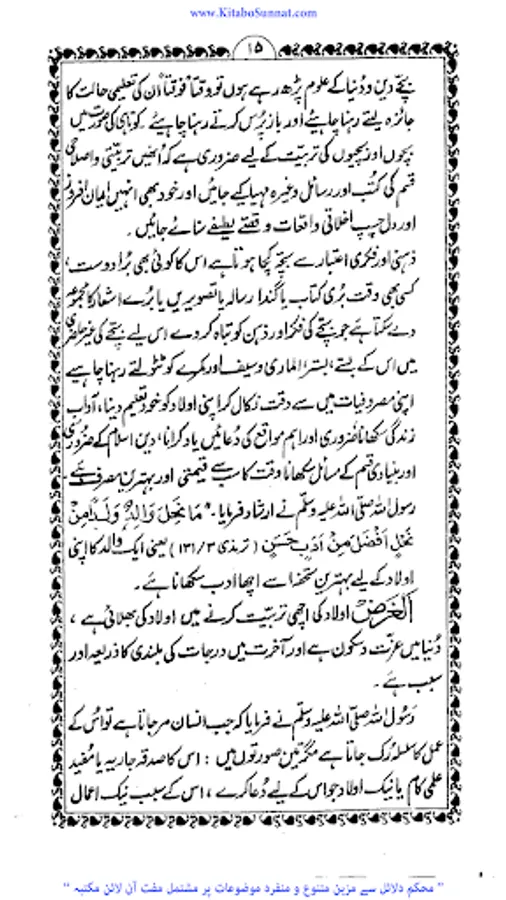 www.KitaboSunnat.com
۱۵
بچّے دین و دُنیا کے علوم پڑھ رہے ہوں تو وقتاً فوقتاً اُن کی تعلیمی حالت کا
جائزہ لیتے رہنا چاہیئے اور باز پُرس کرتے رہنا چاہیئے۔ کوتاہی کی صورت میں
بچوں اور بچیوں کی تربیت کے لیے ضروری ہے کہ انھیں تربیتی و اصلاحی
قسم کی کتب اور رسائل وغیرہ مہیا کیے جائیں اور خود بھی انہیں ایمان افروز
اور دل چسپ اخلاقی واقعات و قصّے لطیفے سنائے جائیں۔
ذہنی اور فکری اعتبار سے بچّہ کچّا ہوتا ہے اس کا کوئی بھی بُرا دوست،
کسی بھی وقت بُری کتاب یا گندا رسالہ یا تصویریں یا بُرے اشعار کا مجموعہ
دے سکتا ہے جو بچّے کی فکر اور ذہن کو تباہ کر دے اس لیے بچّے کی غیر حاضری
میں اس کے بستے، بستر، الماری و سیف اور کمرے کو ٹٹولتے رہنا چاہیے
اپنی مصروفیات میں سے وقت نکال کر اپنی اولاد کو خود تعلیم دینا، آداب
زندگی سکھانا ضروری اور اہم مواقع کی دعائیں یاد کرانا، دین اسلام کے ضروری
اور بنیادی قسم کے مسائل سکھانا وقت کا سب سے قیمتی اور بہترین مصرف ہے۔
رسول اللہ صلی اللہ علیہ وسلم نے ارشاد فرمایا۔ "مَا نَحَلَ وَالِدٌ وَلَدًا مِنْ
نَحْلٍ اَفْضَلَ مِنْ اَدَبٍ حَسَنٍ (ترمذی ۱۳۱/۳) یعنی ایک والد کا اپنی
اولاد کے لیے بہترین تحفہ اسے اچھا ادب سکھانا ہے۔
الغرض اولاد کی اچھی تربیت کرنے میں اولاد کی بھلائی ہے،
دُنیا میں عزّت و سکون ہے اور آخرت میں درجات کی بلندی کا ذریعہ اور
سبب ہے۔
رسُول اللہ صلّی اللہ علیہ وسلّم نے فرمایا کہ جب انسان مر جاتا ہے تو اُس کے
عمل کا سلسلہ رک جاتا ہے مگر تین صورتوں میں : اس کا صدقہ جاریہ یا مُفید
علمی کام یا نیک اولاد جو اس کے لیے دُعا کرے، اس کے سبب نیک اعمال
" محکم دلائل سے مزین متنوع و منفرد موضوعات پر مشتمل مفت آن لائن مکتبہ "